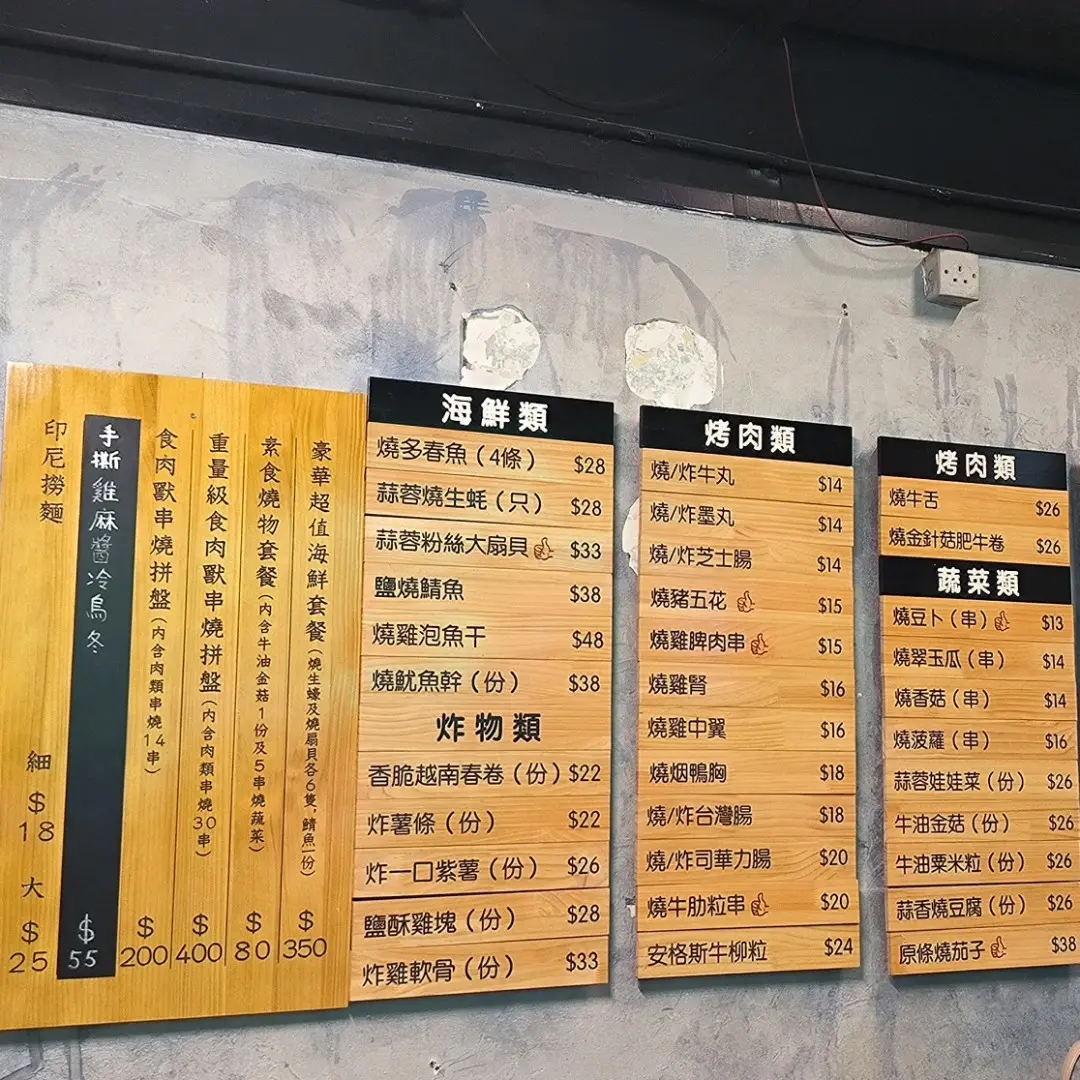 豪華超值海鮮套餐（燒生蠔及燒扇貝各6隻，鯖魚一份） $350
素食燒物套餐（內含牛油金菇1份及5串燒蔬菜） $80
重量級食肉獸串燒拼盤（內含肉類串燒30串） $400
食肉獸串燒拼盤（內含肉類串燒14串） $200
手撕雞麻醬冷烏冬 $55
印尼撈麵 細 $18 大 $25
海鮮類
燒多春魚（4條） $28
蒜蓉燒生蚝（只） $28
蒜蓉粉絲大扇貝 $33
鹽燒鯖魚 $38
燒雞泡魚干 $48
燒魷魚幹（份） $38
炸物類
香脆越南春卷（份） $22
炸薯條（份） $22
炸一口紫薯（份） $26
鹽酥雞塊（份） $28
炸雞軟骨（份） $33
烤肉類
燒/炸牛丸 $14
燒/炸墨丸 $14
燒/炸芝士腸 $14
燒豬五花 $15
燒雞脾肉串 $15
燒雞腎 $16
燒雞中翼 $16
燒烟鴨胸 $18
燒/炸台灣腸 $18
燒/炸司華力腸 $20
燒牛肋粒串 $20
安格斯牛柳粒 $24
烤肉類
燒牛舌 $26
燒金針菇肥牛卷 $26
蔬菜類
燒豆卜（串） $13
燒翠玉瓜（串） $14
燒香菇（串） $14
燒菠蘿（串） $16
蒜蓉娃娃菜（份） $26
牛油金菇（份） $26
牛油粟米粒（份） $26
蒜香燒豆腐（份） $26
原條燒茄子 $38